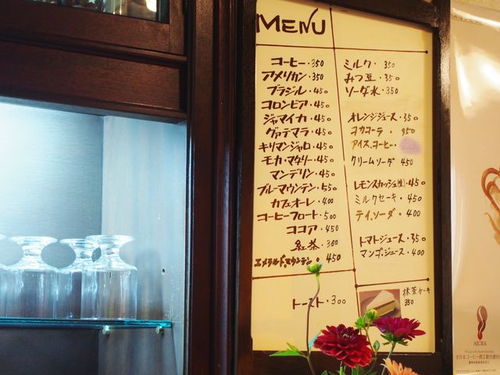 MENU
コーヒー・350
アメリカン・350
ブラジル・450
コロンビア・450
ジャマイカ・450
グァテマラ・450
キリマンジャロ・450
モカ・マタリー・450
マンデリン・450
ブルーマウンテン・550
カフェオーレ・400
コーヒーフロート・500
ココア・450
紅茶・350
エメラルドマウンテン・450
トースト・300
ミルク・350
みつ豆・350
ソーダ水・350
オレンジジュース・350
コカコーラ・
アイスコーヒー・
クリームソーダ 450
レモンスカッシュ(生)・450
ミルクセーキ・450
ティソーダ・400
トマトジュース・350
マンゴジュース・400
抹茶ケーキ
350